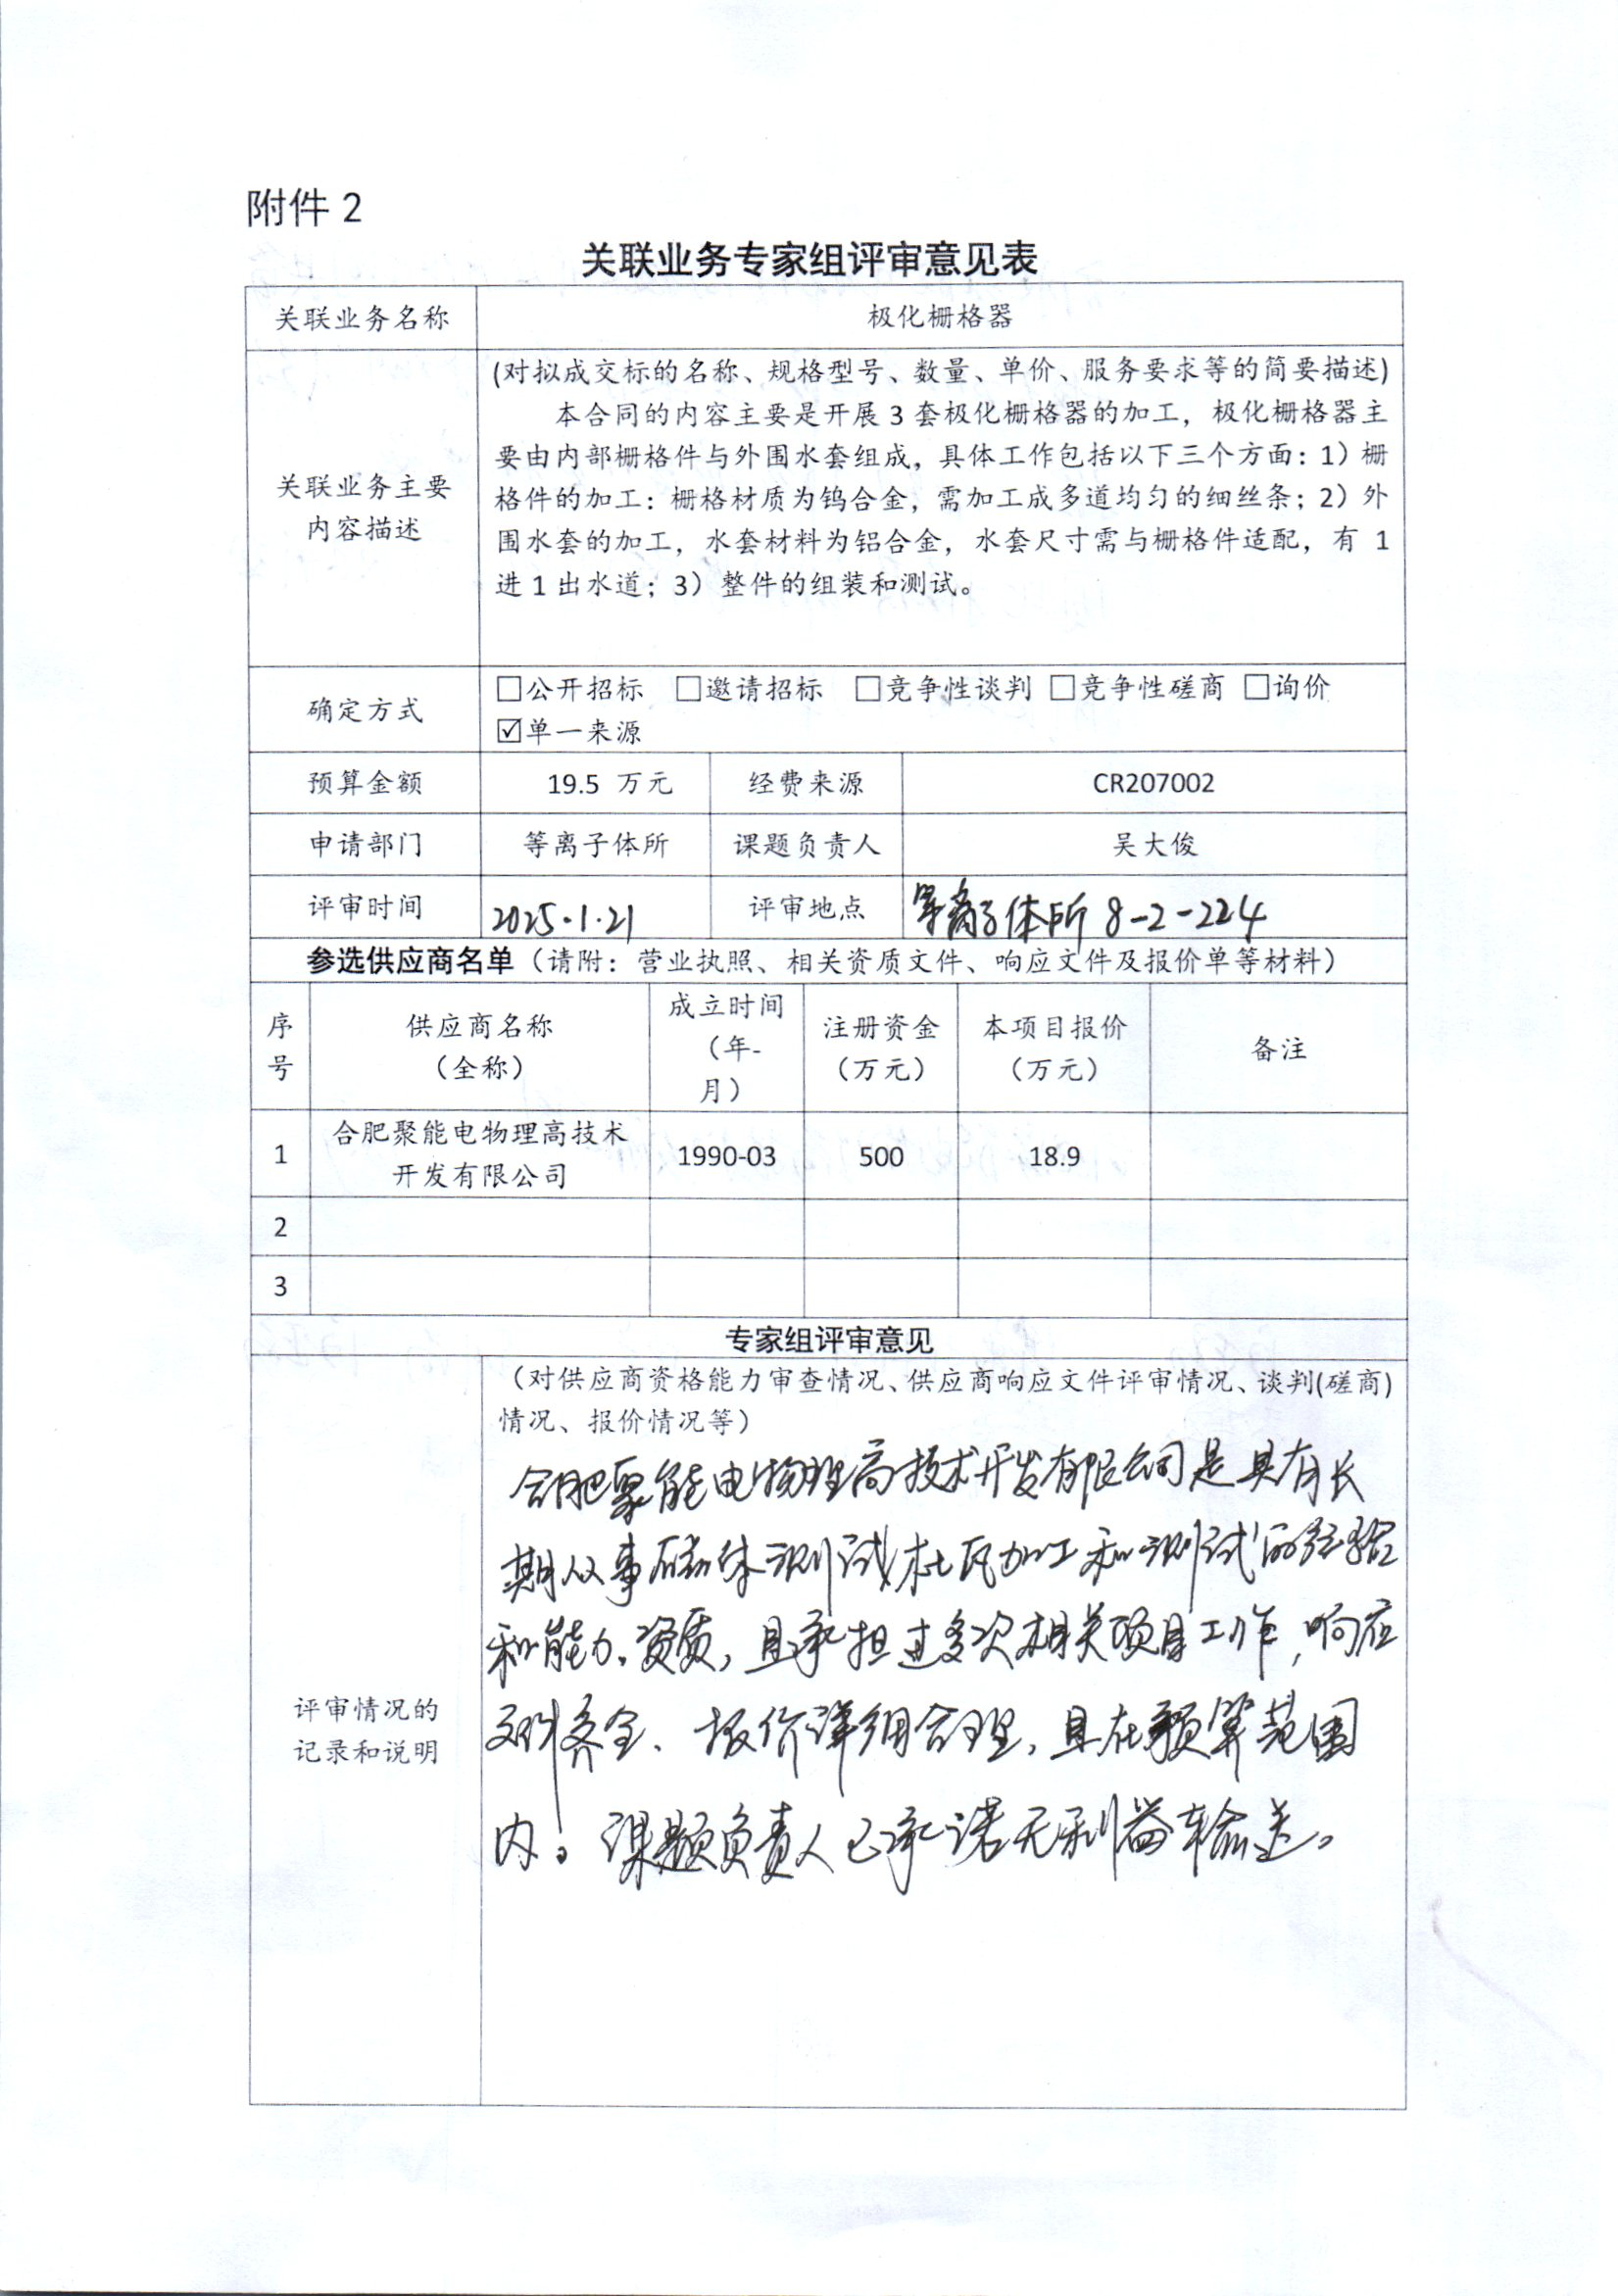 附件 2
关联业务专家组评审意见表
关联业务名称 极化栅格器
关联业务主要
内容描述
(对拟成交标的名称、规格型号、数量、单价、服务要求等的简要描述)
本合同的内容主要是开展 3 套极化栅格器的加工，极化栅格器主
要由内部栅格件与外围水套组成，具体工作包括以下三个方面：1）栅
格件的加工：栅格材质为钨合金，需加工成多道均匀的细丝条；2）外
围水套的加工，水套材料为铝合金，水套尺寸需与栅格件适配，有 1
进 1 出水道；3）整件的组装和测试。
确定方式
□公开招标 □邀请招标 □竞争性谈判 □竞争性磋商 □询价
☑单一来源
预算金额 19.5 万元 经费来源 CR207002
申请部门 等离子体所 课题负责人 吴大俊
评审时间 2025.1.21 评审地点 等离子体所 8-2-224
参选供应商名单（请附：营业执照、相关资质文件、响应文件及报价单等材料）
序
号
供应商名称
（全称）
成立时间
（年-
月）
注册资金
（万元）
本项目报价
（万元）
备注
1
合肥聚能电物理高技术
开发有限公司
1990-03 500 18.9
2
3
专家组评审意见
评审情况的
记录和说明
（对供应商资格能力审查情况、供应商响应文件评审情况、谈判(磋商)
情况、报价情况等）
合肥聚能电物理高技术开发有限公司是具有长
期从事磁体测试杜瓦加工和测试的经验
和能力、资质，且承担过多次相关项目工作，响应
文件齐全、报价详细合理，且在预算范围
内。课题负责人已承诺无利益输送。